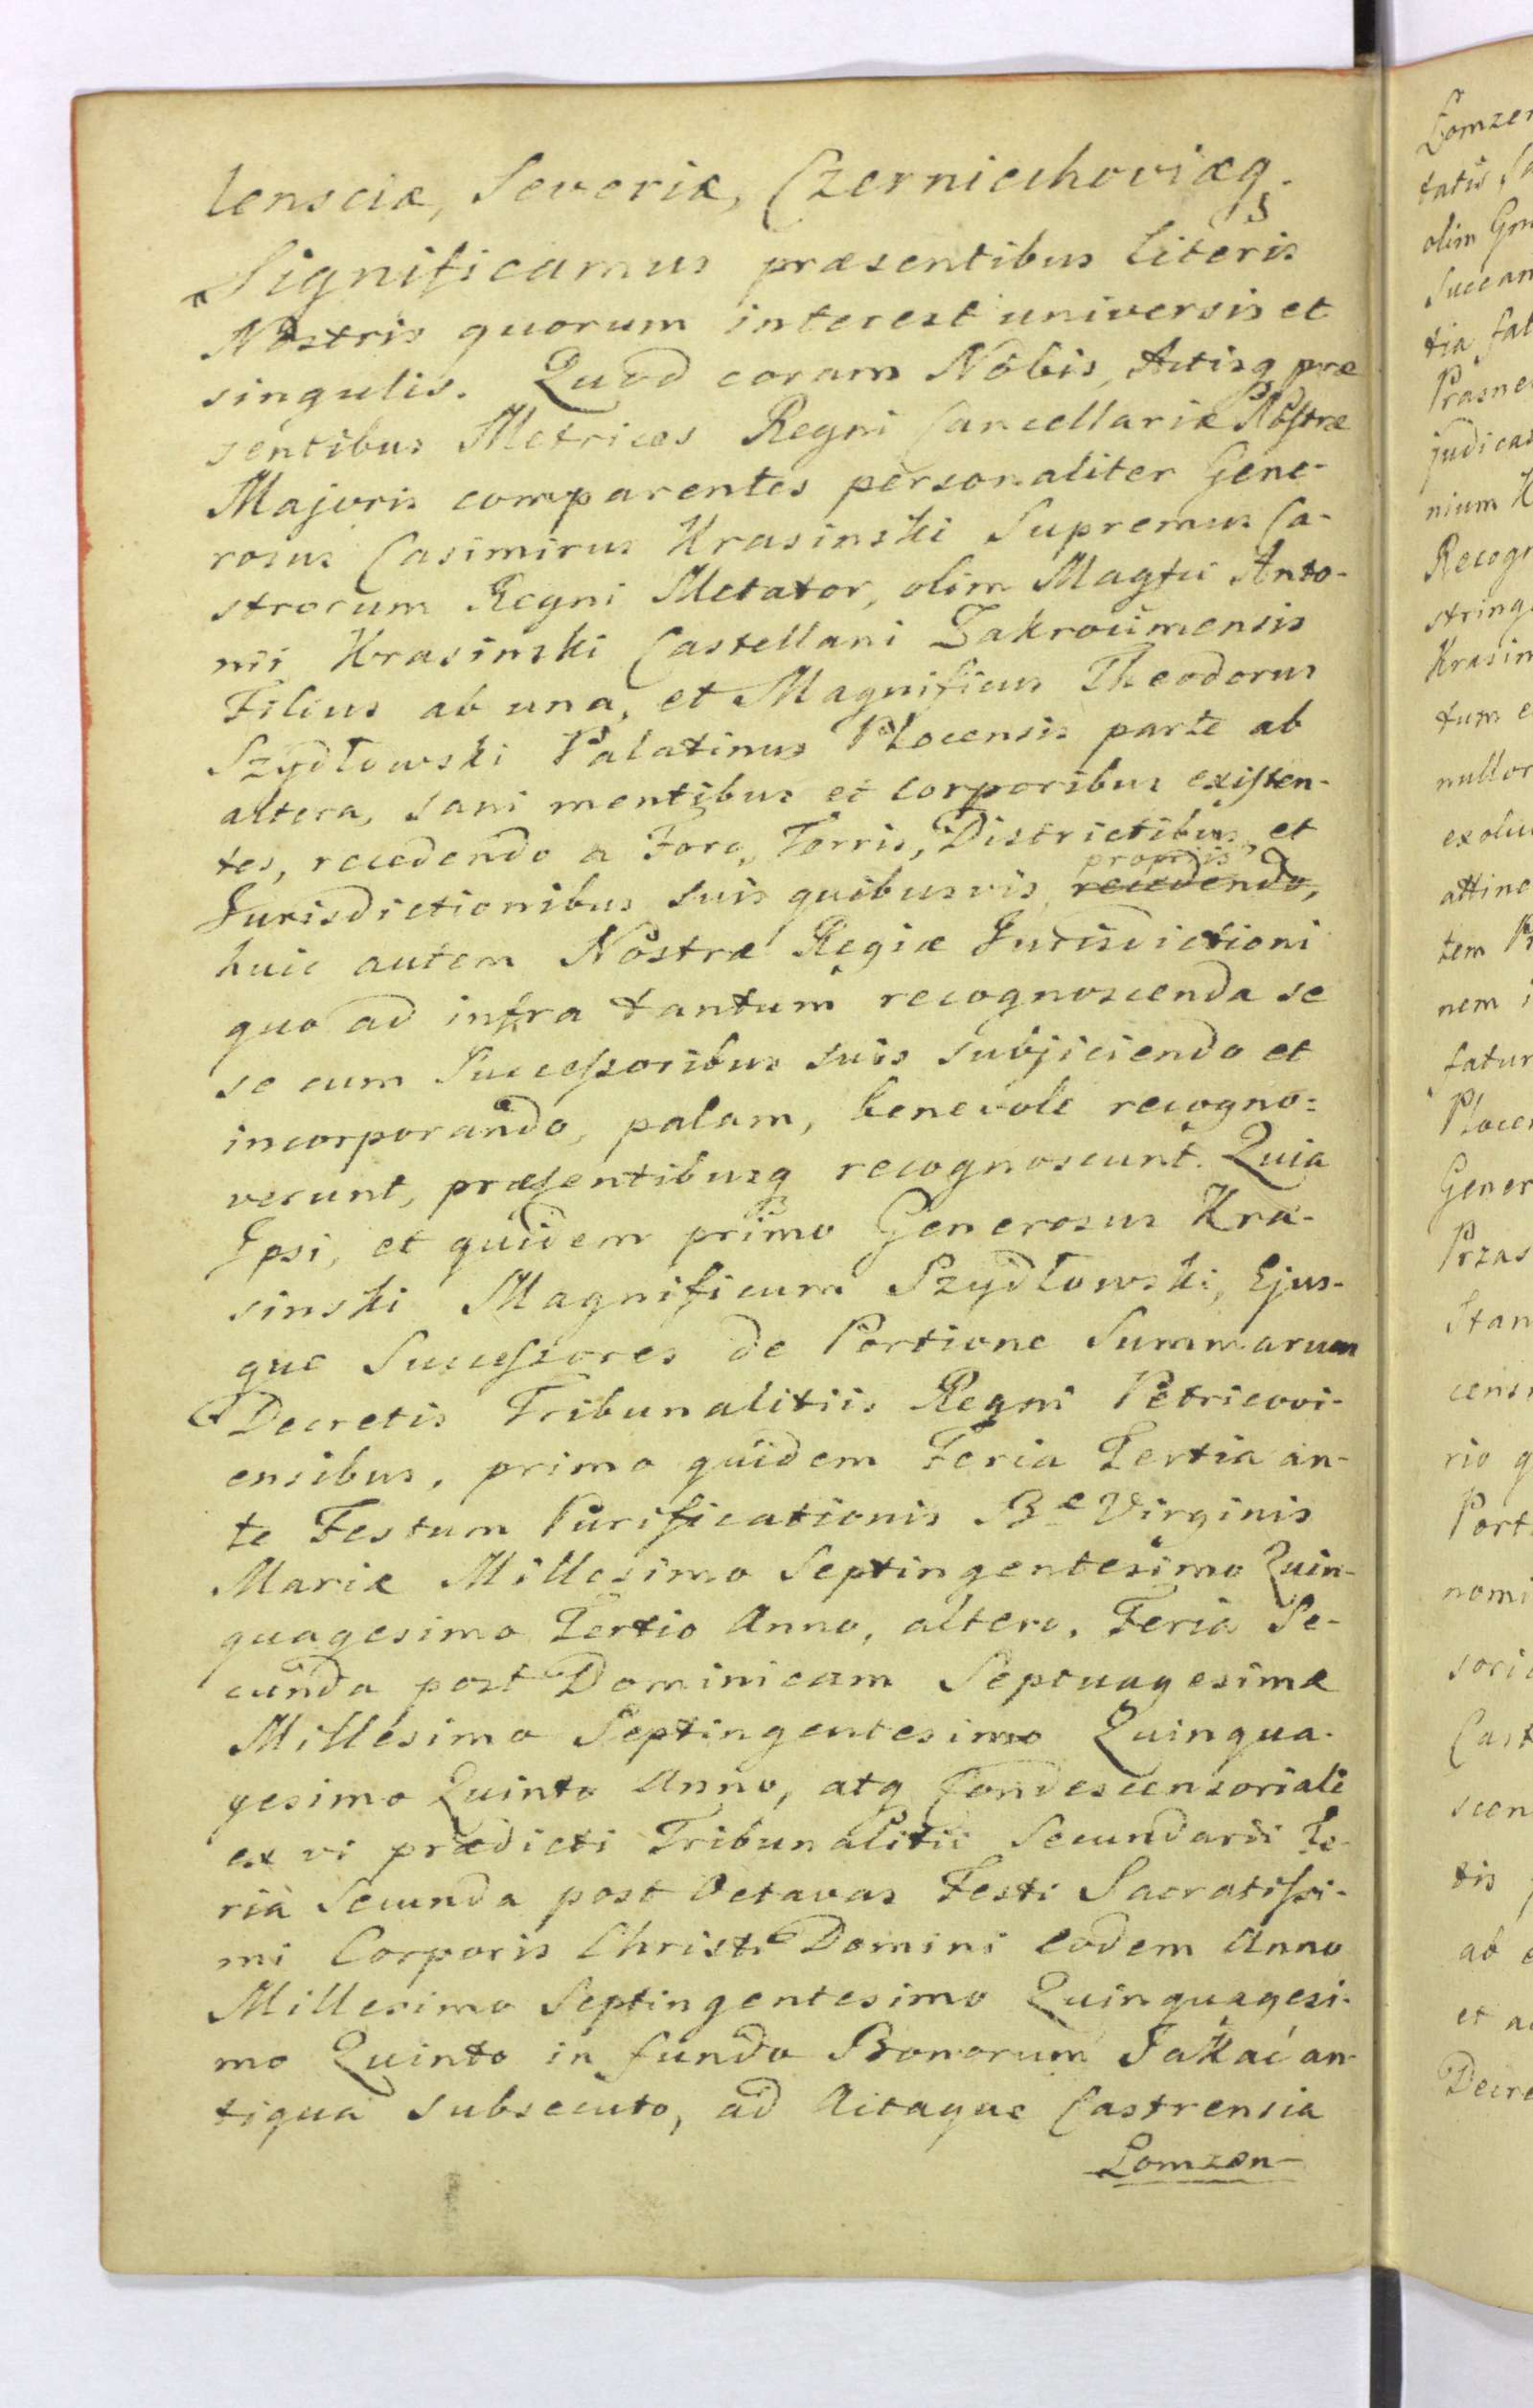 lensciæ, Severiæ, Czerniechoviæq.
Significamus præsentibus literis
Nostris quorum interest universis et
singulis. Quod coram Nobis, Actisq præ
sentibus Metrices Regni Cancellariæ Noſtræ
Majoris comparentes personaliter Gene-
rosus Casimirus Krasinski Supremus Ca-
strorum Regni Metator, olim Magfci Anto-
nii Krasinski Castellani Zakroumensis
Filius ab una, et Magnificus Theodorus
Szydłowski Palatinus Plocensis parte ab
altera, sani mentibus et corporibus exiſten-
tes, recedendo a Foro, Terris, Districtibus, et
propriis
Jurisdictionibus suis quibusvis recedendo,
huic autem Nostræ Regiæ Jurisdictioni
quo ad infra tantum recognoscenda se
se cum Succeſsoribus suis subjiciendo et
incorporando, palam, benevole recogno=
verunt, præſentibusq recognoscunt. Quia
Ipsi, et quidem primo Generosus Kra-
sinski Magnificum Szydłowski, Ejus-
que Succeſsores de Portione Summarum
Decretis Tribunalitiis Regni Petricovi-
ensibus, primo quidem Feria Tertia an-
te Festum Purificationis Bæ Virginis
Mariæ Millesimo Septingentesimo Quin-
quagesimo Tertio Anno, altero, Feria Se-
cunda post Dominicam Septuagesimæ
Millesimo Septingentesimo Quinqua-
gesimo Quinto Anno, atq Condescensoriali
ex vi prædicti Tribunalitii Secundarii Fe-
ria Secunda post Octavas Festi Sacratiſsi-
mi Corporis Christi Domini eodem Anno
Millesimo Septingentesimo Quinquagesi-
mo Quinto in fundo Bonorum Jakać an-
tiqua subsecuto, ad Actaque Castrensia
Lomzen-
Lomzen
tatis
olim
Succan
tia
Prasne
judicat
nium K
Recogn
string
Krasin
tum e
nullor
exolu
attine
tem
nem i
fatur
Plocen
Gener
Przas
Stan
censi
rio q
Porti
nomi
soria
Cast
scen
tis
ab
et a
Decre